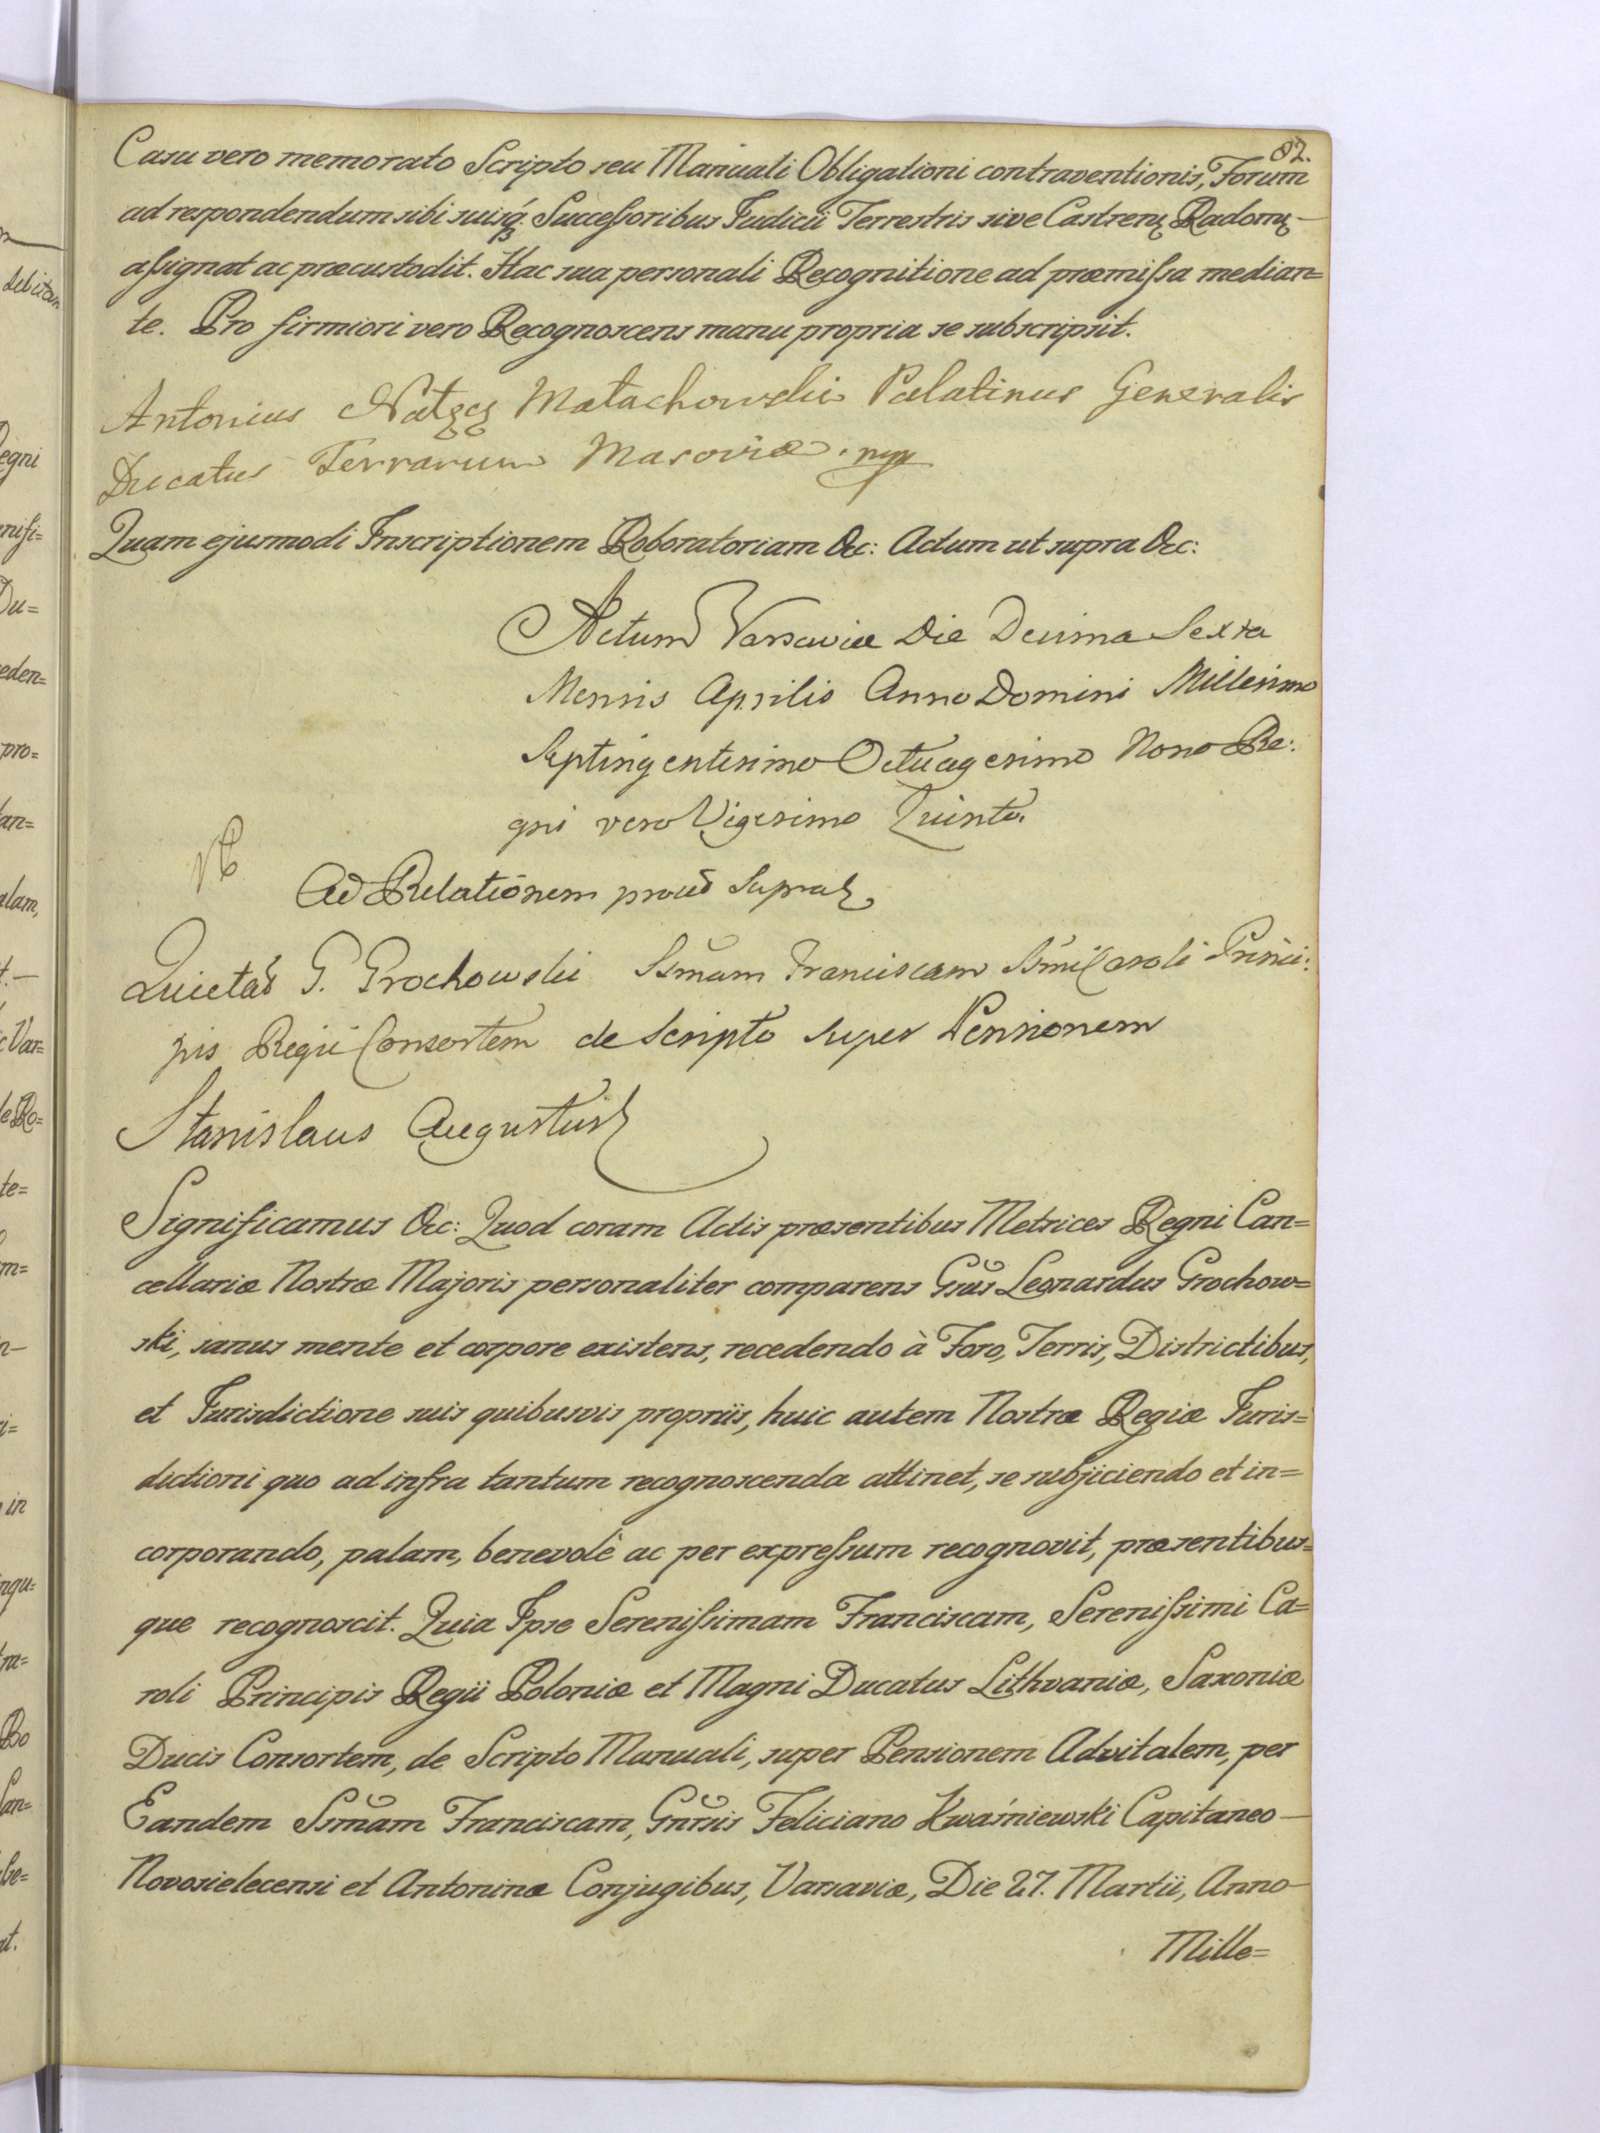 82.
Casu vero memorato Scripto seu Manuali Obligationi contraventionis, Forum
ad respondendum sibi suisq́ʒ Succeſsoribus Judicii Terrestris sive Castrenʒ Radomʒ
aſsignat ac præcustodit. Hac sua personali Recognitione ad præmiſsa median=
te. Pro firmiori vero Recognoscens manu propria se subscripsit.
Antonius Małachowski Palatinus Generalis
Ducatus Terrarum Masoviæ. mpp
Quam ejusmodi Inscriptionem Roboratoriam &c: Actum ut supra &c:
Actum Varsaviæ Die Decima Sexta
Mensis Aprilis Anno Domini Millesimo
Septingentesimo Octuagesimo Nono Re:
gni vero Vigesimo Quinto.
Ad Relationem prout Supra
Quietat G. Grochowski Ssm̃am Franciscam Ssm̃i Caroli Princi:
pis Regii Consortem de Scripto super Pensionem
Stanislaus Augustus
Significamus &c: Quod coram Actis præsentibus Metrices Regni Can=
cellariæ Nostræ Majoris personaliter comparens Gn̄sus Leonardus Grochow=
ski, sanus mente et corpore existens, recedendo à Foro, Terris, Districtibus,
et Jurisdictione suis quibusvis propriis, huic autem Nostræ Regiæ Juris=
dictioni quo ad infra tantum recognoscenda attinet, se subjiciendo et in=
corporando, palam, benevolè ac per expreſsum recognovit, præsentibus=
que recognoscit. Quia Ipse Sereniſsimam Franciscam, Sereniſsimi Ca=
roli Principis Regii Poloniæ et Magni Ducatus Lithvaniæ, Saxoniæ
Ducis Consortem, de Scripto Manuali, super Pensionem Advitalem, per
Eandem Ssm̃am Franciscam, Gn̄rsis Feliciano Kwaśniewski Capitaneo
Novosielecensi et Antoninæ Conjugibus, Varsaviæ, Die 27. Martii, Anno
Mille=